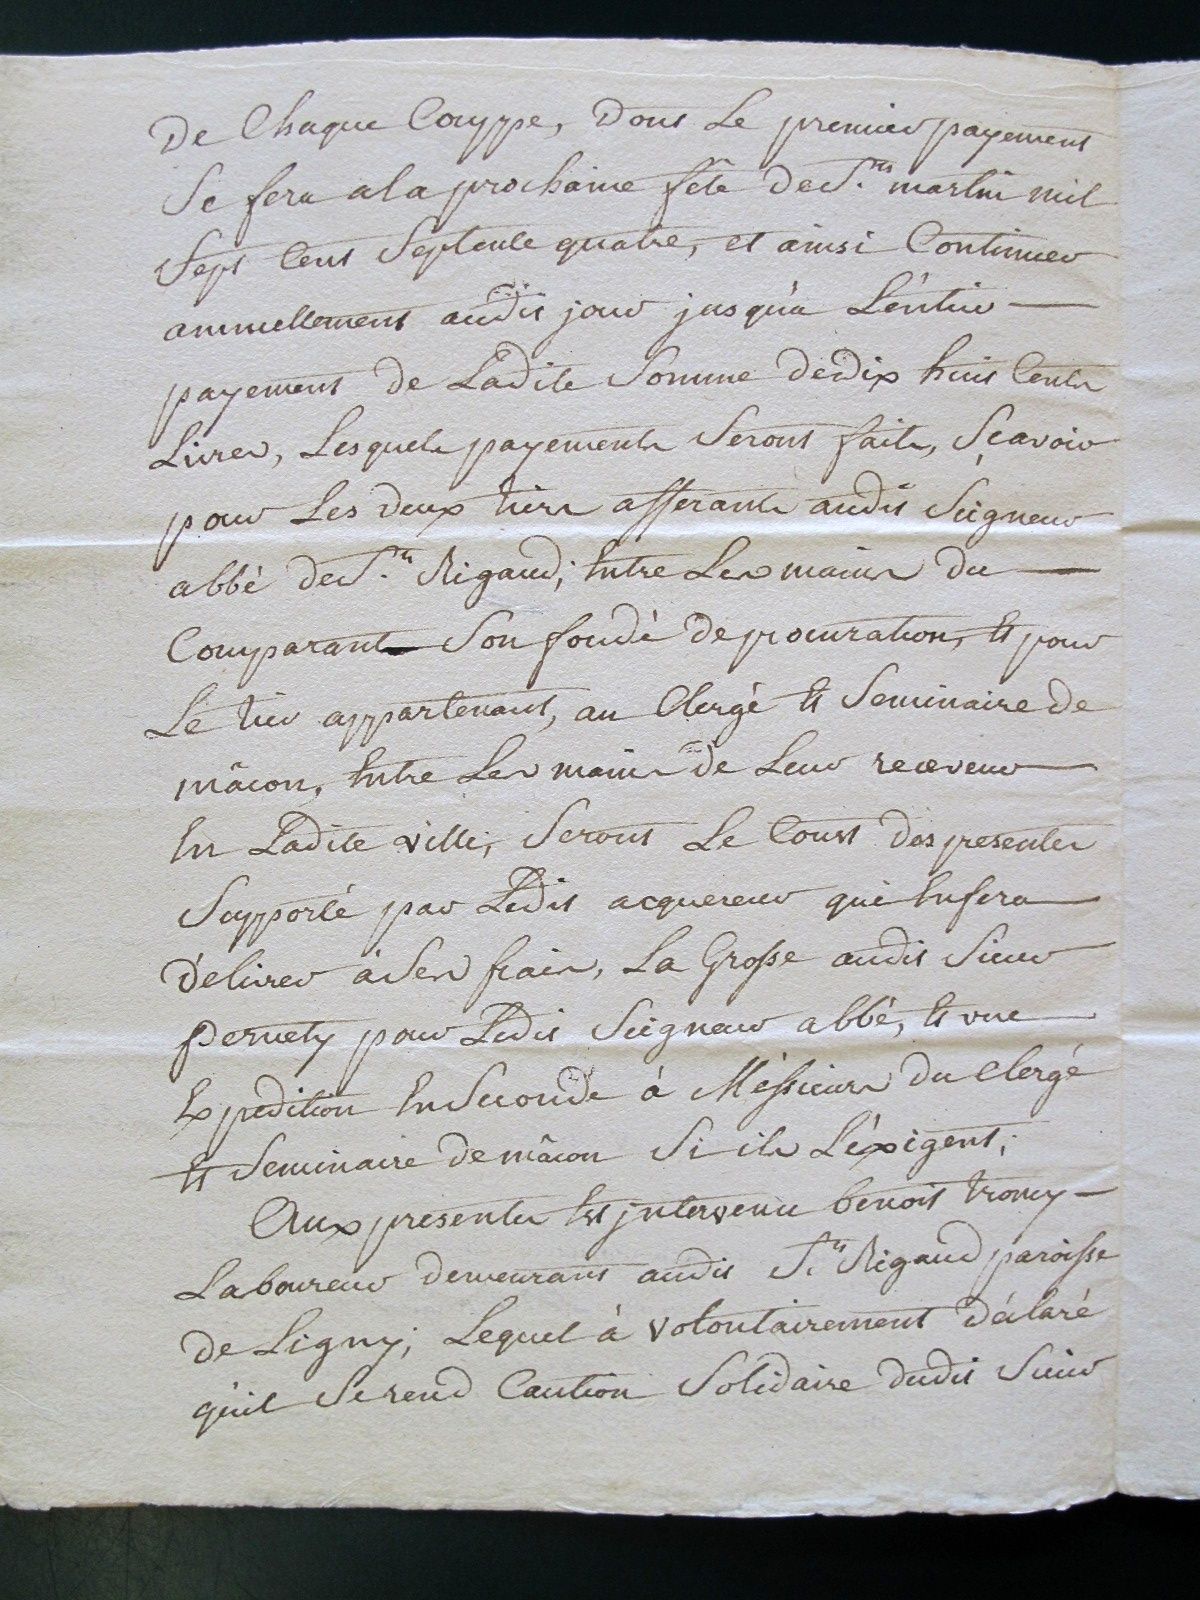 De Chaque Couppe, Dont Le premier payement
Se fera a la prochaine fête de St. martin mil
Sept Cent Septente quatre, et ainsi Continuer
annuellement audit jour jusqu'a L'éntier
payement de Ladite Somme de dix huit Cents
Livres, Lesquels payements Seront faits, Sçavoir
pour Les deux tiers afferants audit Seigneur
abbé de St. Rigaud; Entre Les mains du
Comparant Son fondé de procuration, Et pour
Le tier appartenant, au Clergé Et Seminaire de
mâcon, Entre Les mains de Leur receveur
En Ladite ville, Seront Le Coust des presentes
Supporté par Ledit acquereur qui En fera
délivrer à Ses frais, La Grosse audit Sieur
Pernety pour Ledit Seigneur abbé, Et une
Expedition En Seconde à Méssieurs du Clergé
Et Seminaire de mâcon Si ils L'éxigent;
Aux presentes Est jntervenu benoit troncy
Laboureur demeurant audit St. Rigaud paroisse
de Ligny; Lequel à volontairement déclaré
qu'il Se rend Caution Solidaire dudit Sieur